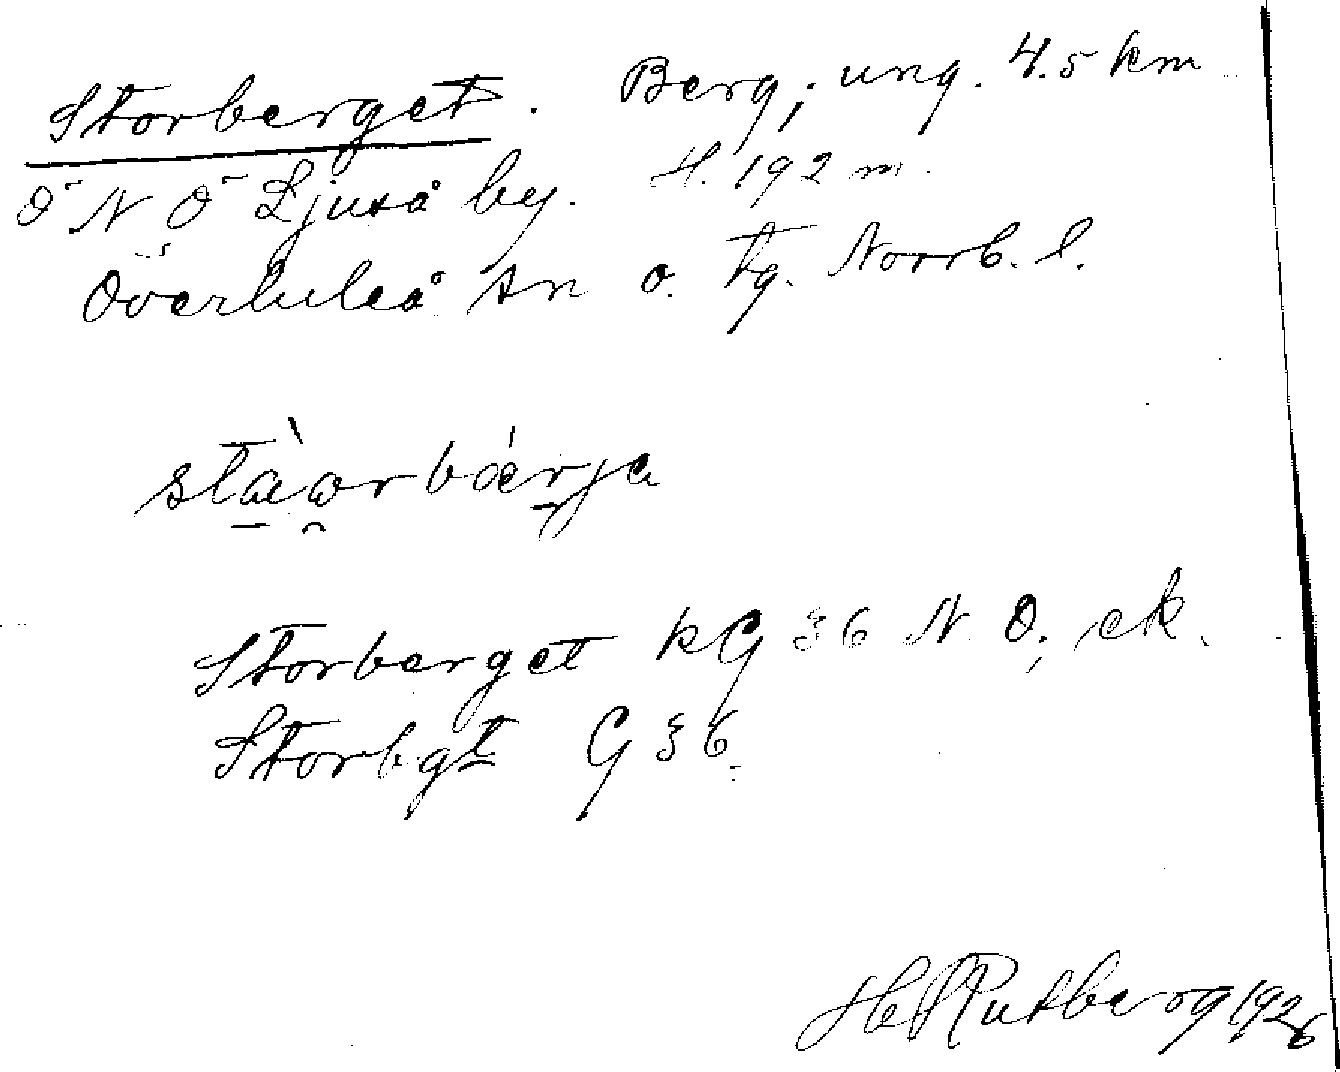 Storberget. Berg, ung. 4.5 km
Ö N Ö Ljuså by. H. 192 m.
Överluleå sn o. tg. Norrb. l.
Storberget kG 36 N. O., ek.
Storbgt G 36.
H Rutberg 1926